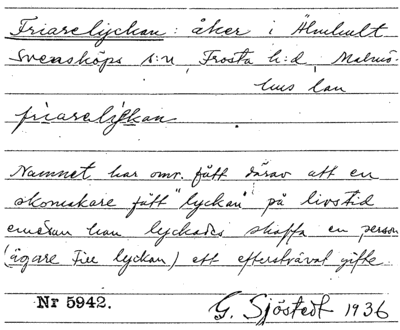 Friarelyckan: åker i Älmhult
Svensköps s:n, Frosta h:d, Malmö-
hus län
friarelykan
Namnet har omr. fått därav att en
skomakare fått "lyckan" på livstid
emedan han lyckades skaffa en person
(ägare till lyckan) ett eftersträvat gifte.
Nr 5942. G. Sjöstedt 1936